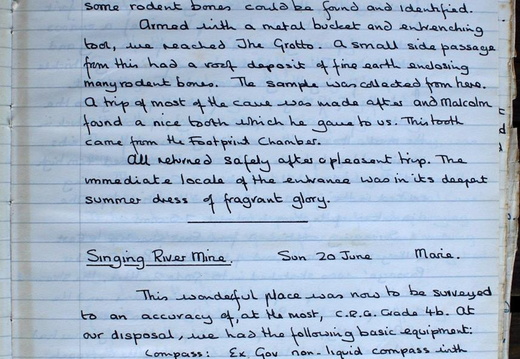 some rodent bones could be found and identified.
Armed with a metal bucket and entrenching
tool, we reached The Grotto. A small side passage
from this had a roof deposit of fine earth enclosing
many rodent bones. The sample was collected from here.
A trip of most of the cave was made after and Malcolm
found a nice tooth which he gave to us. This tooth
came from the Footprint Chamber.
All returned safely after a pleasant trip. The
immediate locale of the entrance was in its deepest
summer dress of fragrant glory.
Singing River Mine. Sun 20 June Marie.
This wonderful place was now to be surveyed
to an accuracy of, at the most, C.R.G. Grade 4b. At
our disposal, we had the following basic equipment:
Compass: Ex. Gov non-liquid compass with